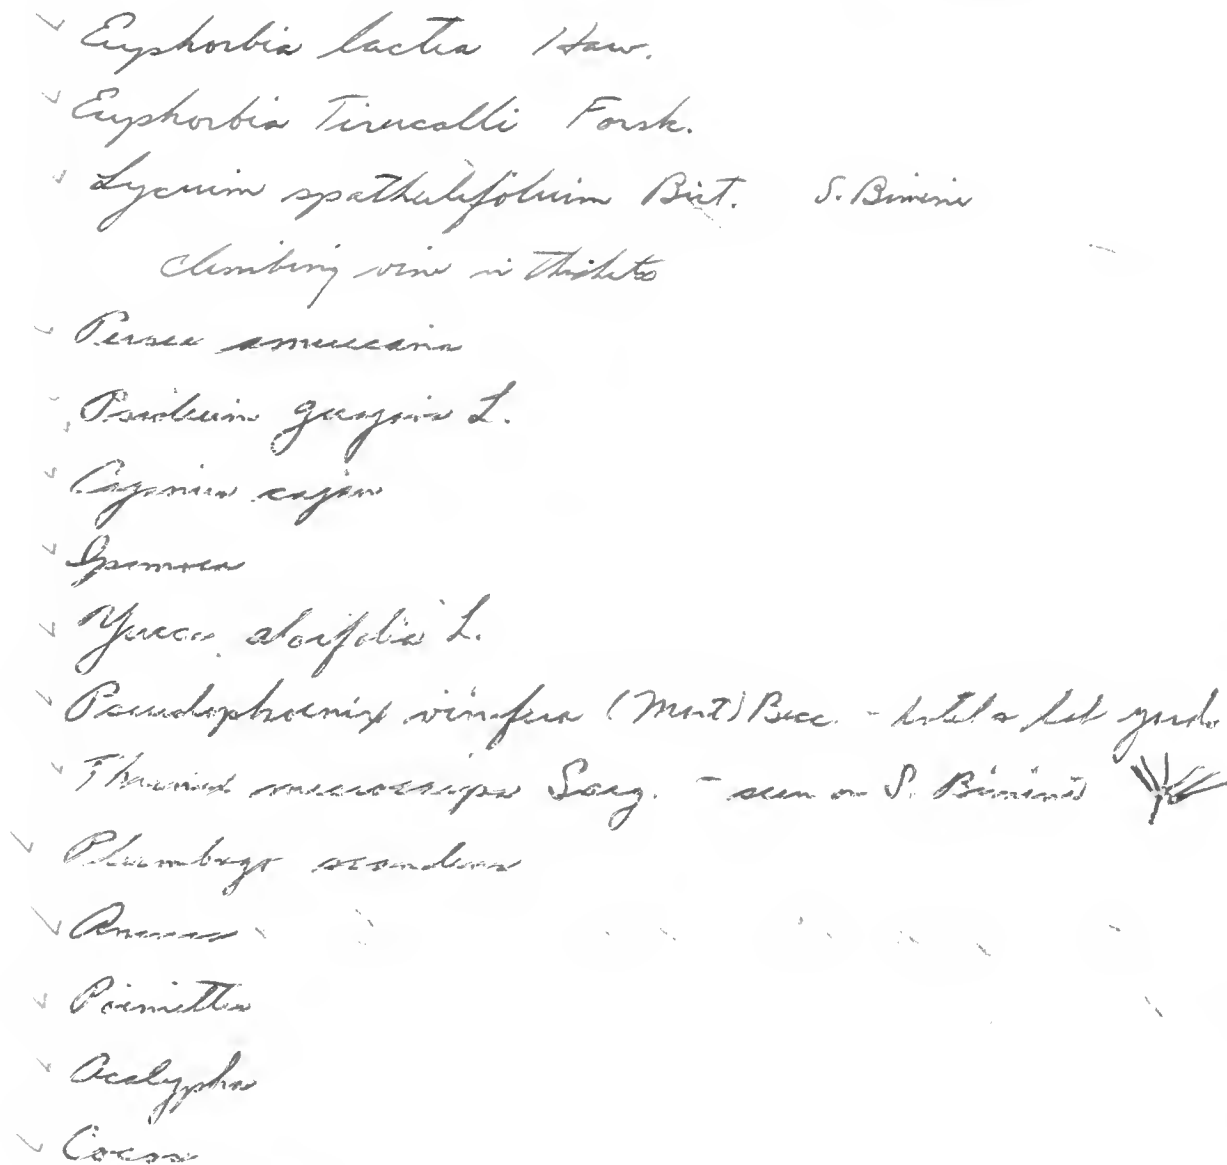 ✓ Euphorbia lactea Haw.
✓ Euphorbia Tirucalli Forsk.
✓ Lycium spathulifolium Brit. S. Bimini
climbing vine in thickets
✓ Persea americana
✓ Psidium guajava L.
✓ Cajanus cajan
✓ Ipomoea
✓ Yucca aloifolia L.
✓ Pseudophoenix vinifera (Mart) Becc. - hotel yard
✓ Thrinax microcarpa Sarg. - seen on S. Bimini
✓ Plumbago scandens
✓ Ananas
✓ Poinsettia
✓ Acalypha
✓ Cocos